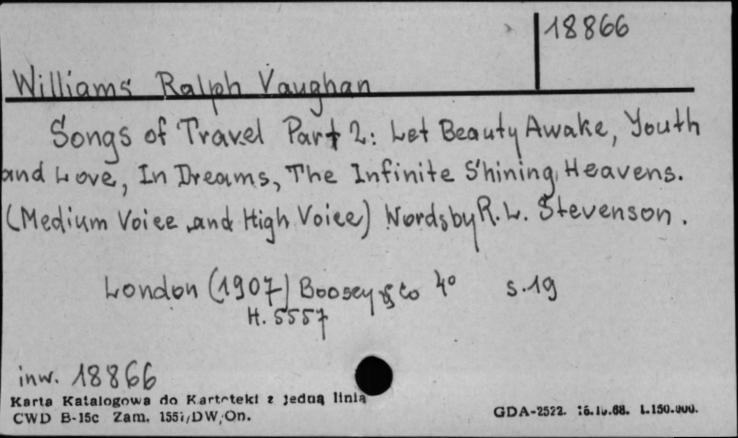 18866
Williams Ralph Vaughan
Songs of Travel Part 2: Let Beauty Awake, Youth
and Love, In Dreams, The Infinite Shining Heavens.
(Medium Voice and High Voice) Words by R. L. Stevenson.
London (1907) Boosey & Co 4° s. 19
H. 5557
inw. 18866
Karta Katalogowa do Kartoteki z jedną linią
CWD B-15c Zam. 1551/DW/On.
GDA-2522. 16.10.68. 1.150.000.